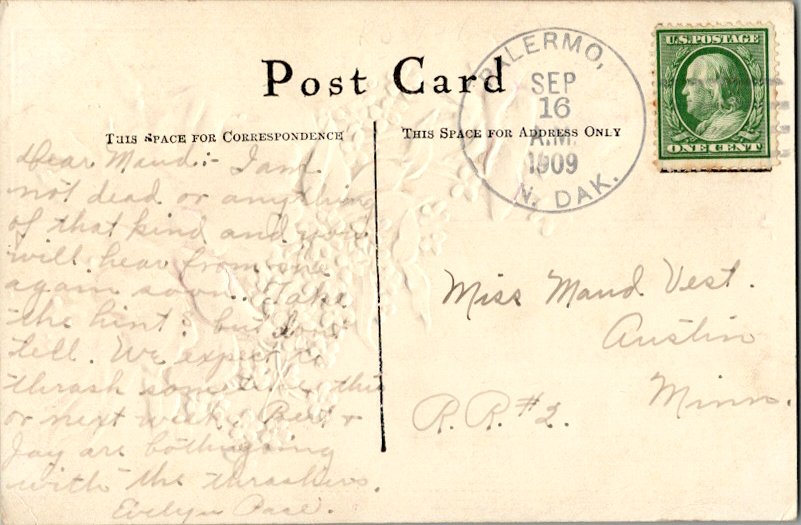 Post Card
THIS SPACE FOR CORRESPONDENCE
THIS SPACE FOR ADDRESS ONLY
PALERMO,
SEP
16
A.M.
1909
N. DAK.
U.S. POSTAGE
ONE CENT
Dear Maud:- I am
not dead or anything
of that kind and you
will hear from me
again soon. Take
the hint: but don't
tell. We expect to
thrash sometime this
or next week. Bert &
Jay are both going
with the thrashers.
Evelyn
Miss Maud Vest.
Austin
Minn.
R. R. #2.